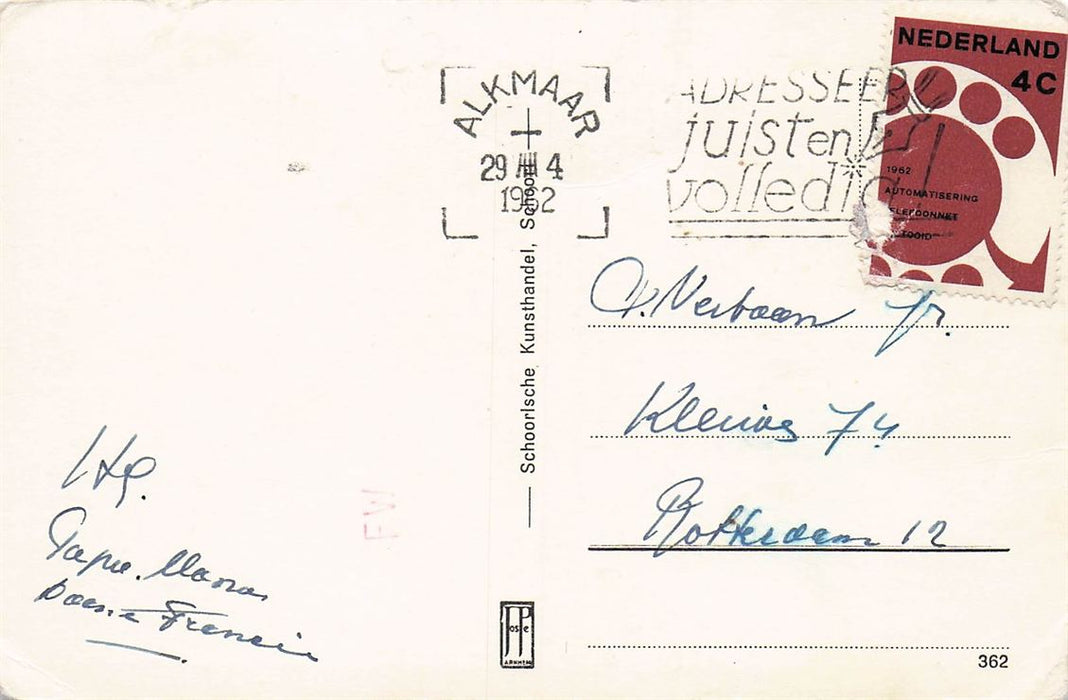 ALKMAAR
29 4
1962
ADRESSEER
juist en
volledig!
NEDERLAND
4C
1962
AUTOMATISERING
TELEFOONNET
VOLTOOID
Htg.
Papa. Mama,
Francin
FW
Schoorlsche Kunsthandel, Schoorl
JP
oste
ARNHEM
Verbaan Jr.
Kleiweg 74
Rotterdam 12
362